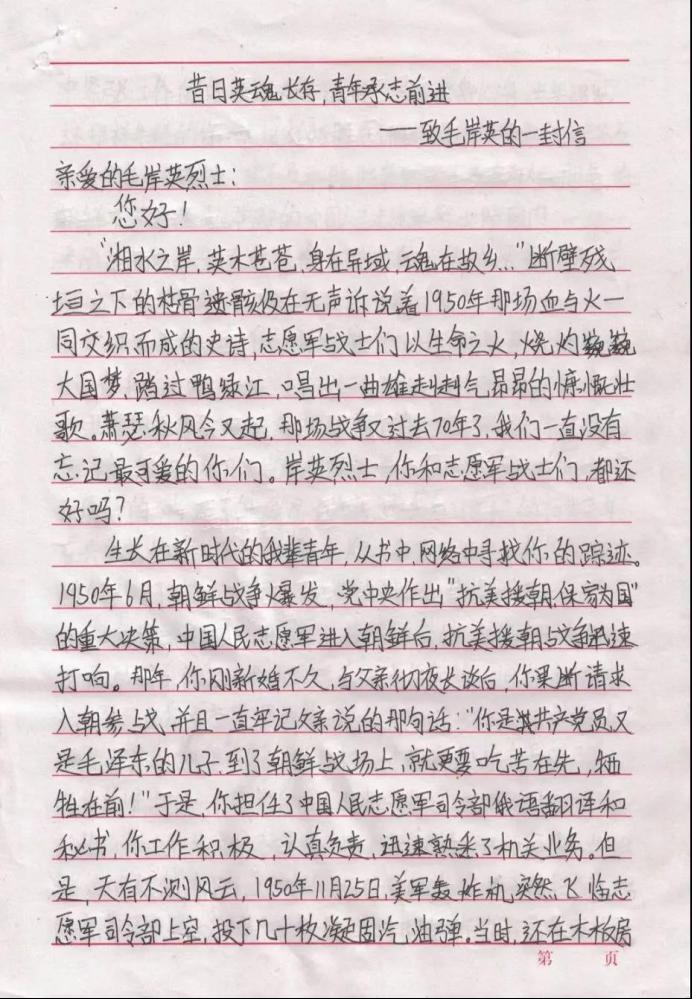 昔日英魂长存,青年承志前进
——致毛岸英的一封信
亲爱的毛岸英烈士:
您好!
“湘水之岸,英木苍苍,身在异域,魂在故乡...”断壁残
垣之下的枯骨遗骸仍在无声诉说着1950年那场血与火一
同交织而成的史诗,志愿军战士们以生命之火,烧灼巍巍
大国梦,踏过鸭绿江,唱出一曲雄赳赳气昂昂的慷慨壮
歌。萧瑟秋风今又起,那场战争又过去70年了,我们一直没有
忘记最可爱的你们。岸英烈士,你和志愿军战士们,都还
好吗?
生长在新时代的我辈青年,从书中,网络中寻找你的踪迹。
1950年6月,朝鲜战争爆发,党中央作出“抗美援朝,保家为国”
的重大决策,中国人民志愿军进入朝鲜后,抗美援朝战争迅速
打响。那年,你刚新婚不久,与父亲彻夜长谈后,你果断请求
入朝参战,并且一直牢记父亲说的那句话:“你是共产党员,又
是毛泽东的儿子,到了朝鲜战场上,就更要吃苦在先,牺
牲在前!”于是,你担任了中国人民志愿军司令部俄语翻译和
秘书,你工作积极,认真负责,迅速熟悉了机关业务。但
是,天有不测风云,1950年11月25日,美军轰炸机突然飞临志
愿军司令部上空,投下几十枚凝固汽油弹。当时,还在木板房
第 页